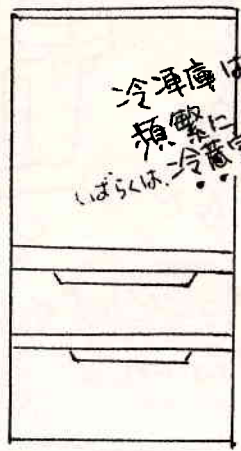 冷凍庫は
頻繁に
いばらくは、冷蔵